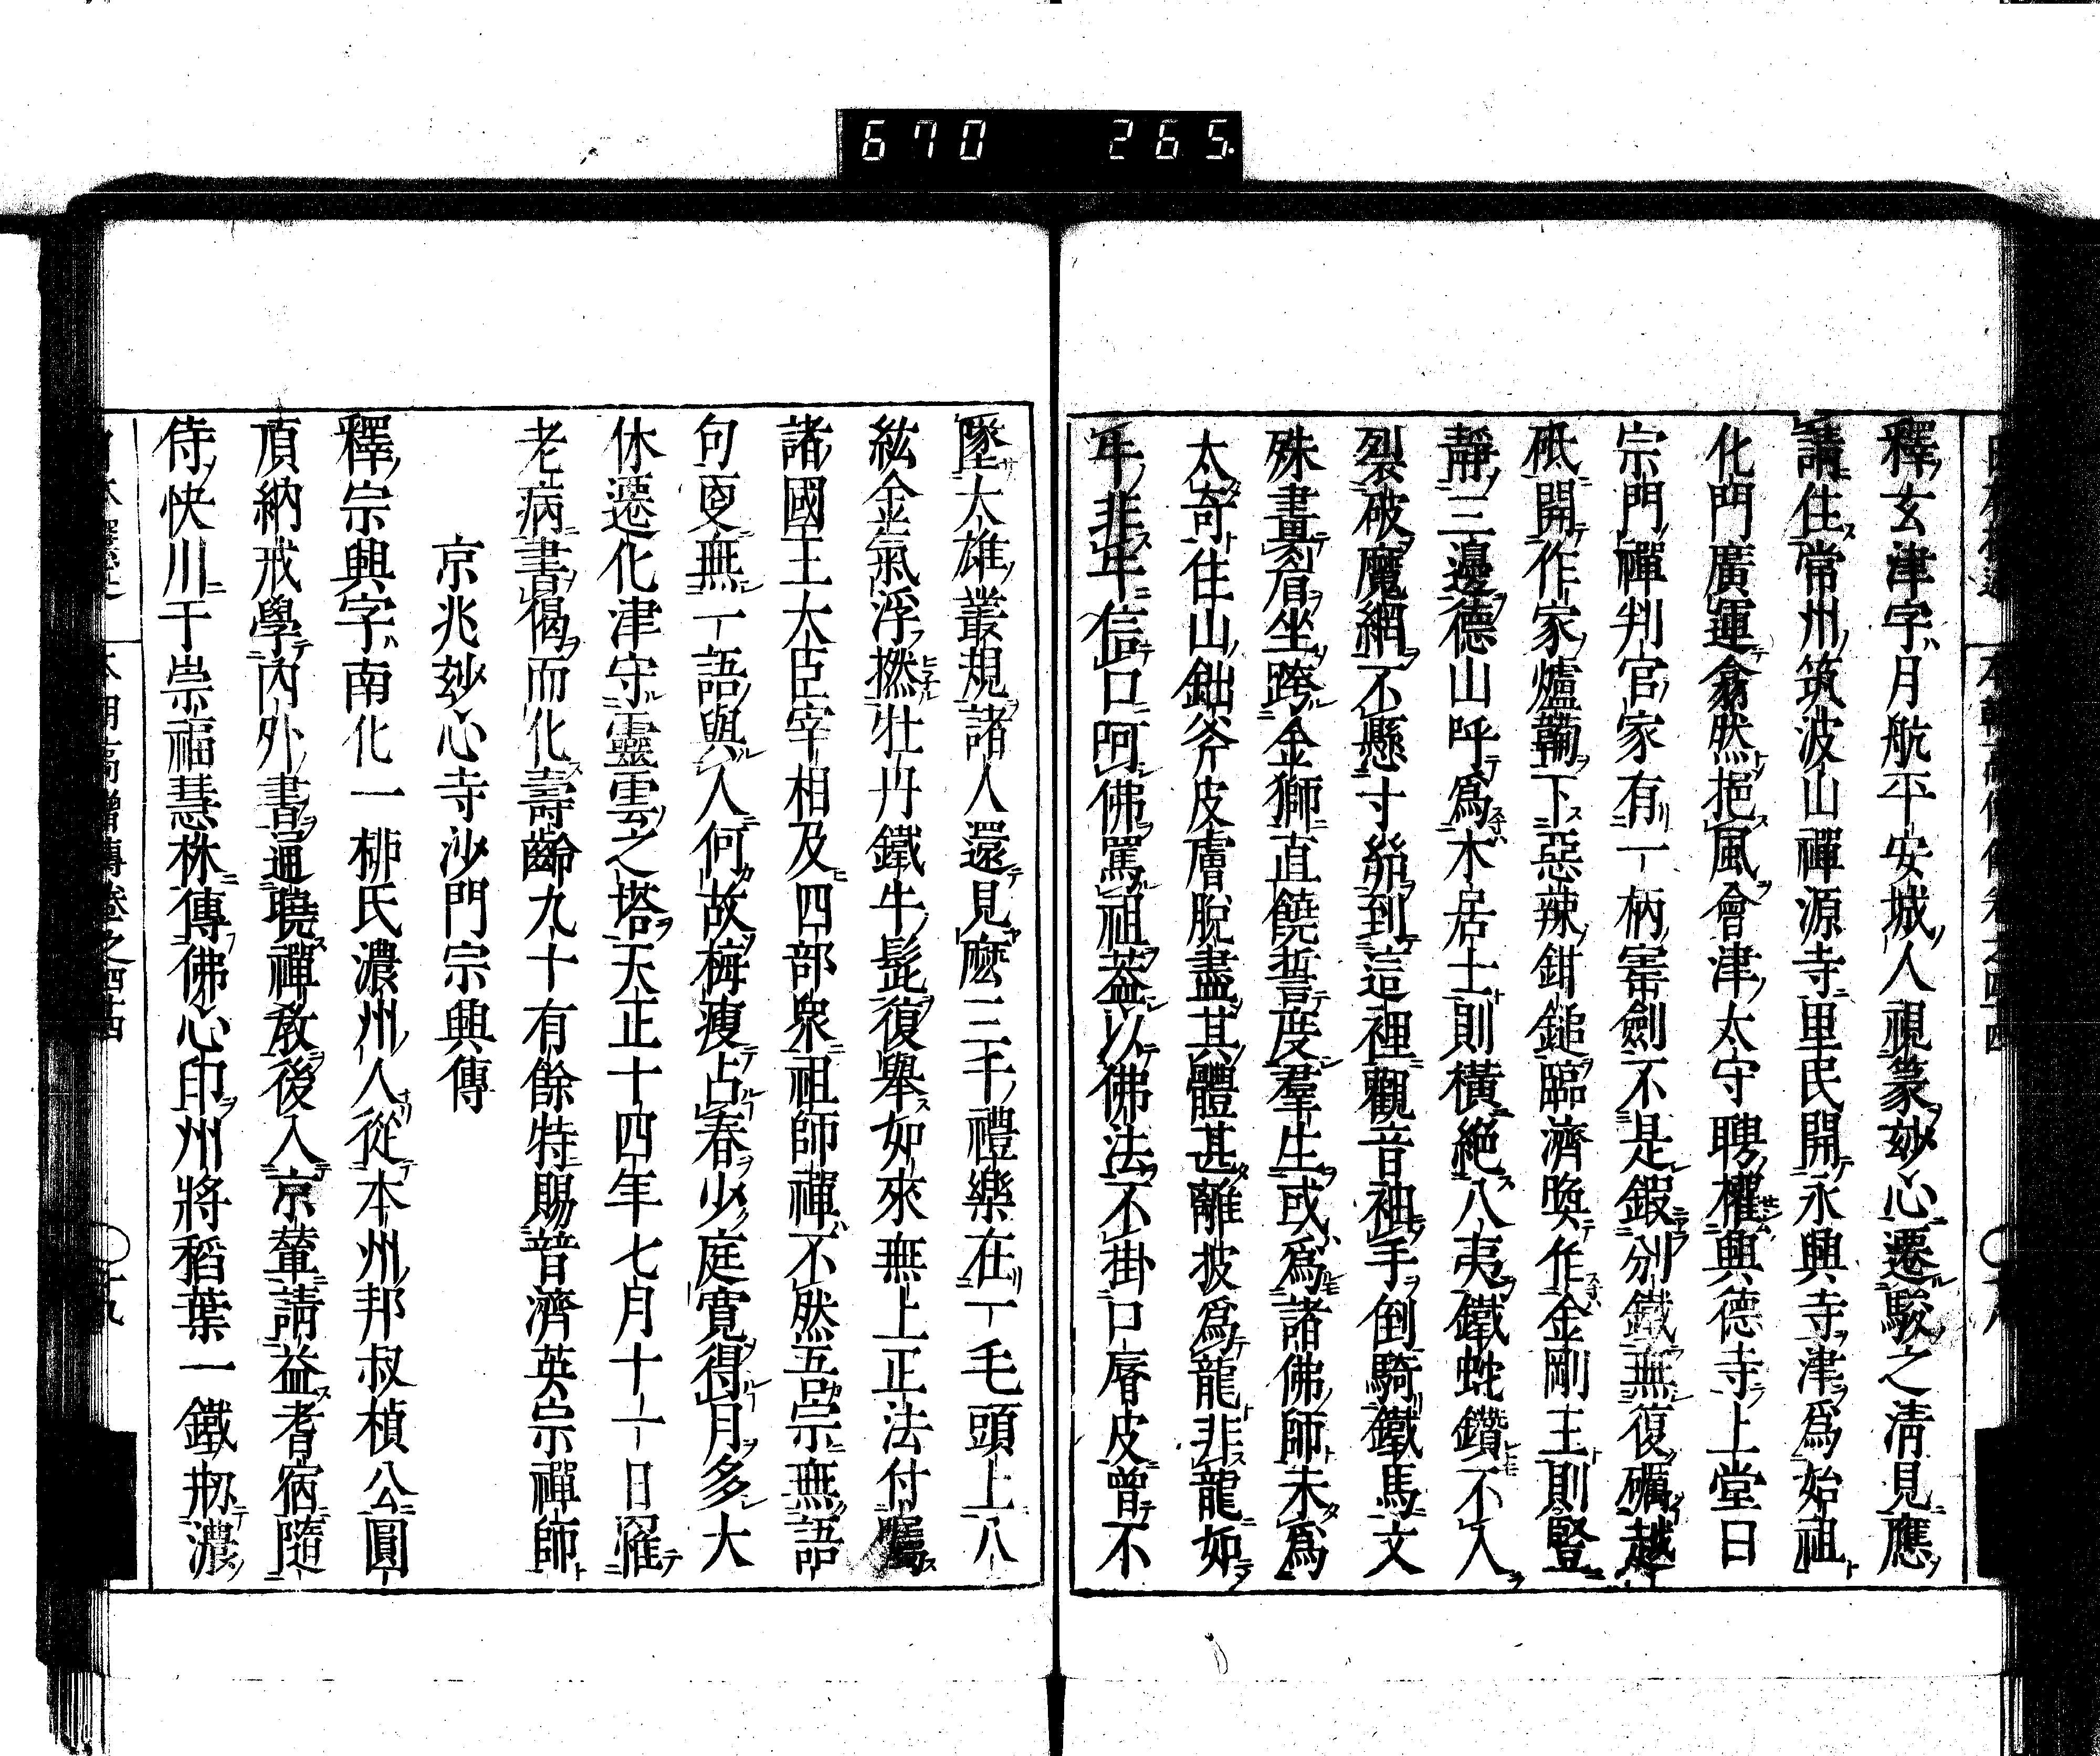 670 265
釋玄津字月航平安城人視篆妙心遷駿之淸見應
請住常州筑波山禪源寺里民開永興寺津爲始祖
化門廣運翕然挹風會津太守聘權興德寺上堂曰
宗門禪判官家有一柄寗劍不是鍜別鐵無復礪越
砥開作家爐鞴下惡辣鉗鎚臨濟喚作金剛王則豎
靜三邊德山呼爲木居士則橫絶八夷鐵蛇鑽不入
裂破魔網不懸寸絲到這裡觀音袖手倒騎鐵馬文
殊畫眉坐跨金獅直饒誓度羣生或爲諸佛師未爲
太奇住山鈯斧皮膚脫盡其體甚離披爲龍非龍如
年非年信口呵佛罵祖葢以佛法不掛口脣皮曾不
墜大雄叢規諸人還見麽三千禮樂在一毛頭上八
紘金氣浮撚壯丹鐵牛髭復舉如來無上正法付屬
諸國王大臣宰相及四部衆祖師禪不然吾宗無語
句更無一語與人何故梅瘦占春少庭寛得月多大
休遷化津守靈雲之塔天正十四年七月十一日罹
老病書偈而化壽齡九十有餘特賜普濟英宗禪師
京兆妙心寺沙門宗興傳
釋宗興字南化一柳氏濃州人從本州邦叔楨公圓
頂納戒學內外書通曉禪教後入京輦請益耆宿隨
侍快川于崇福慧林傳佛心印州將稻葉一鐵刱濃
本朝高僧傳卷之四十四 十九